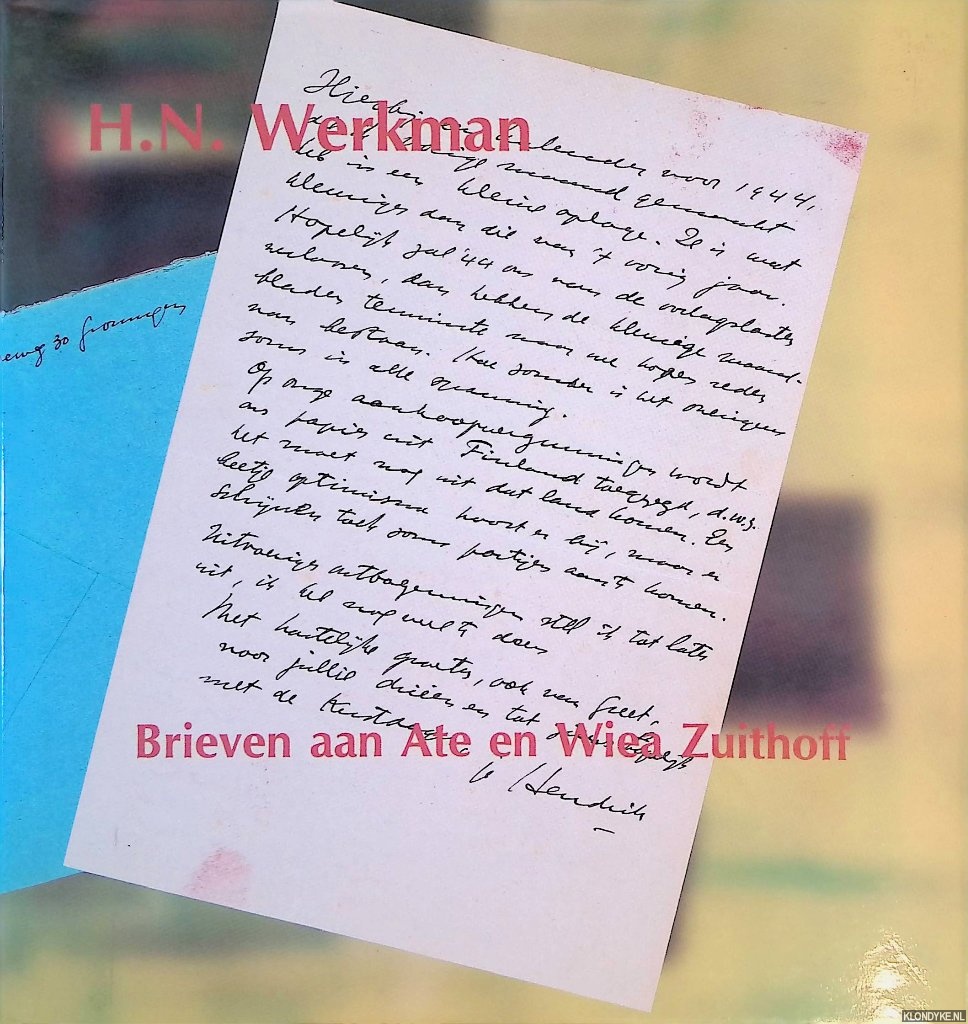 H.N. Werkman
Hierbij een kalender voor 1944,
die ik vorige maand gemaakt
heb in een kleine oplage. Ze is wat
kleuriger dan die van 't vorig jaar.
Hopelijk zal '44 ons van de oorlogslasten
verlossen, dan hebben de kleurige maand-
bladen tenminste naar we hopen reden
van bestaan. Hoe somber is het overigens
soms in alle spanning.
Op onze aankoopvergunningen wordt
ons papier uit Finland toegezegd, d.w.z.
het moet nog uit dat land komen. Een
beetje optimisme hoort er bij, maar er
schijnen toch soms partijen aan te komen.
Uitvoerige ontboezemingen stel ik tot later
uit, ik heb nog veel te doen
Met hartelijke groeten, ook van Greet,
voor jullie drieën en tot
met de Kerstdagen
Hendrik
eweg 30 Groningen
Brieven aan Ate en Wiea Zuithoff
KLONDYKE.NL